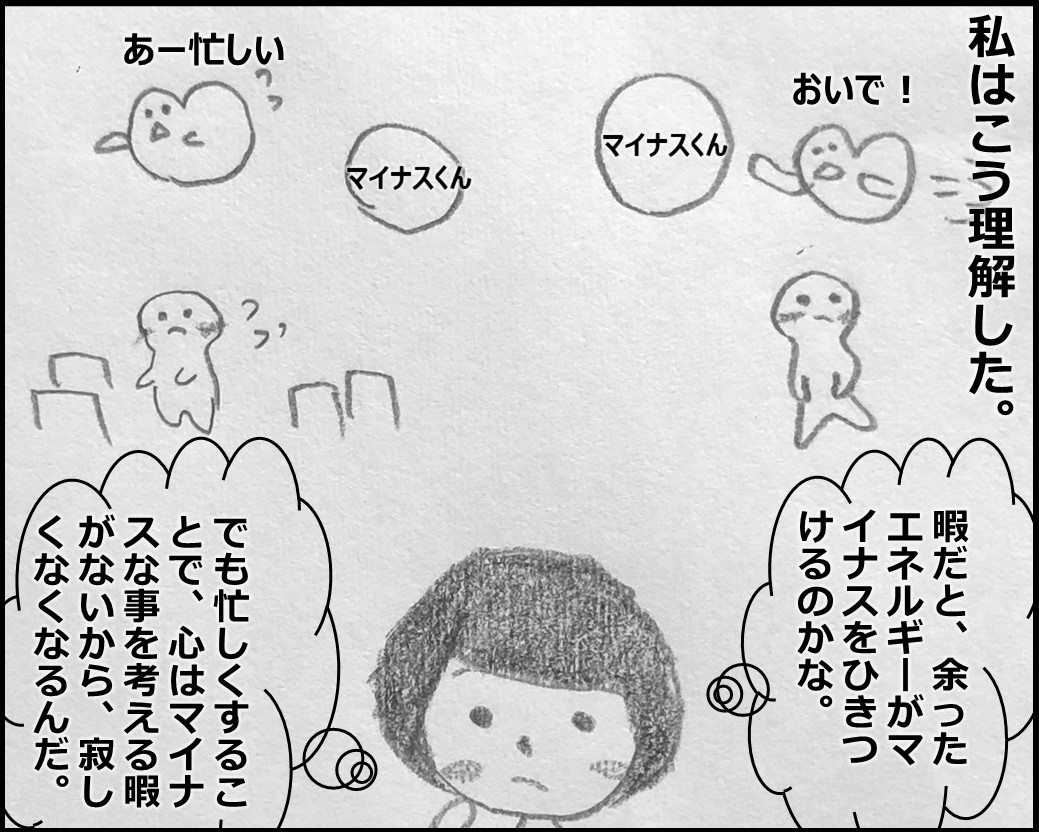 私はこう理解した。
おいで！
マイナスくん
あー忙しい
マイナスくん
暇だと、余った
エネルギーがマ
イナスをひきつ
けるのかな。
でも忙しくするこ
とで、心はマイナ
スな事を考える暇
がないから、寂し
くなくなるんだ。